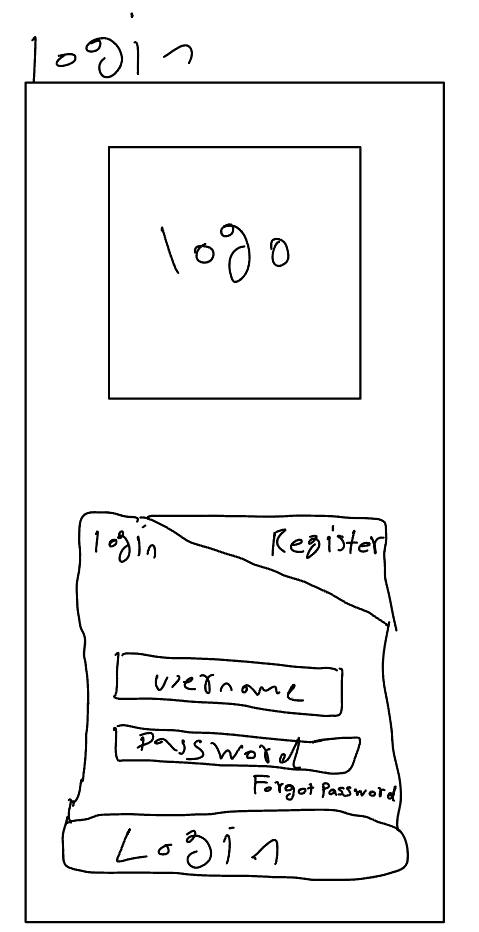 login
logo
login Register
username
Password
Forgot Password
Login